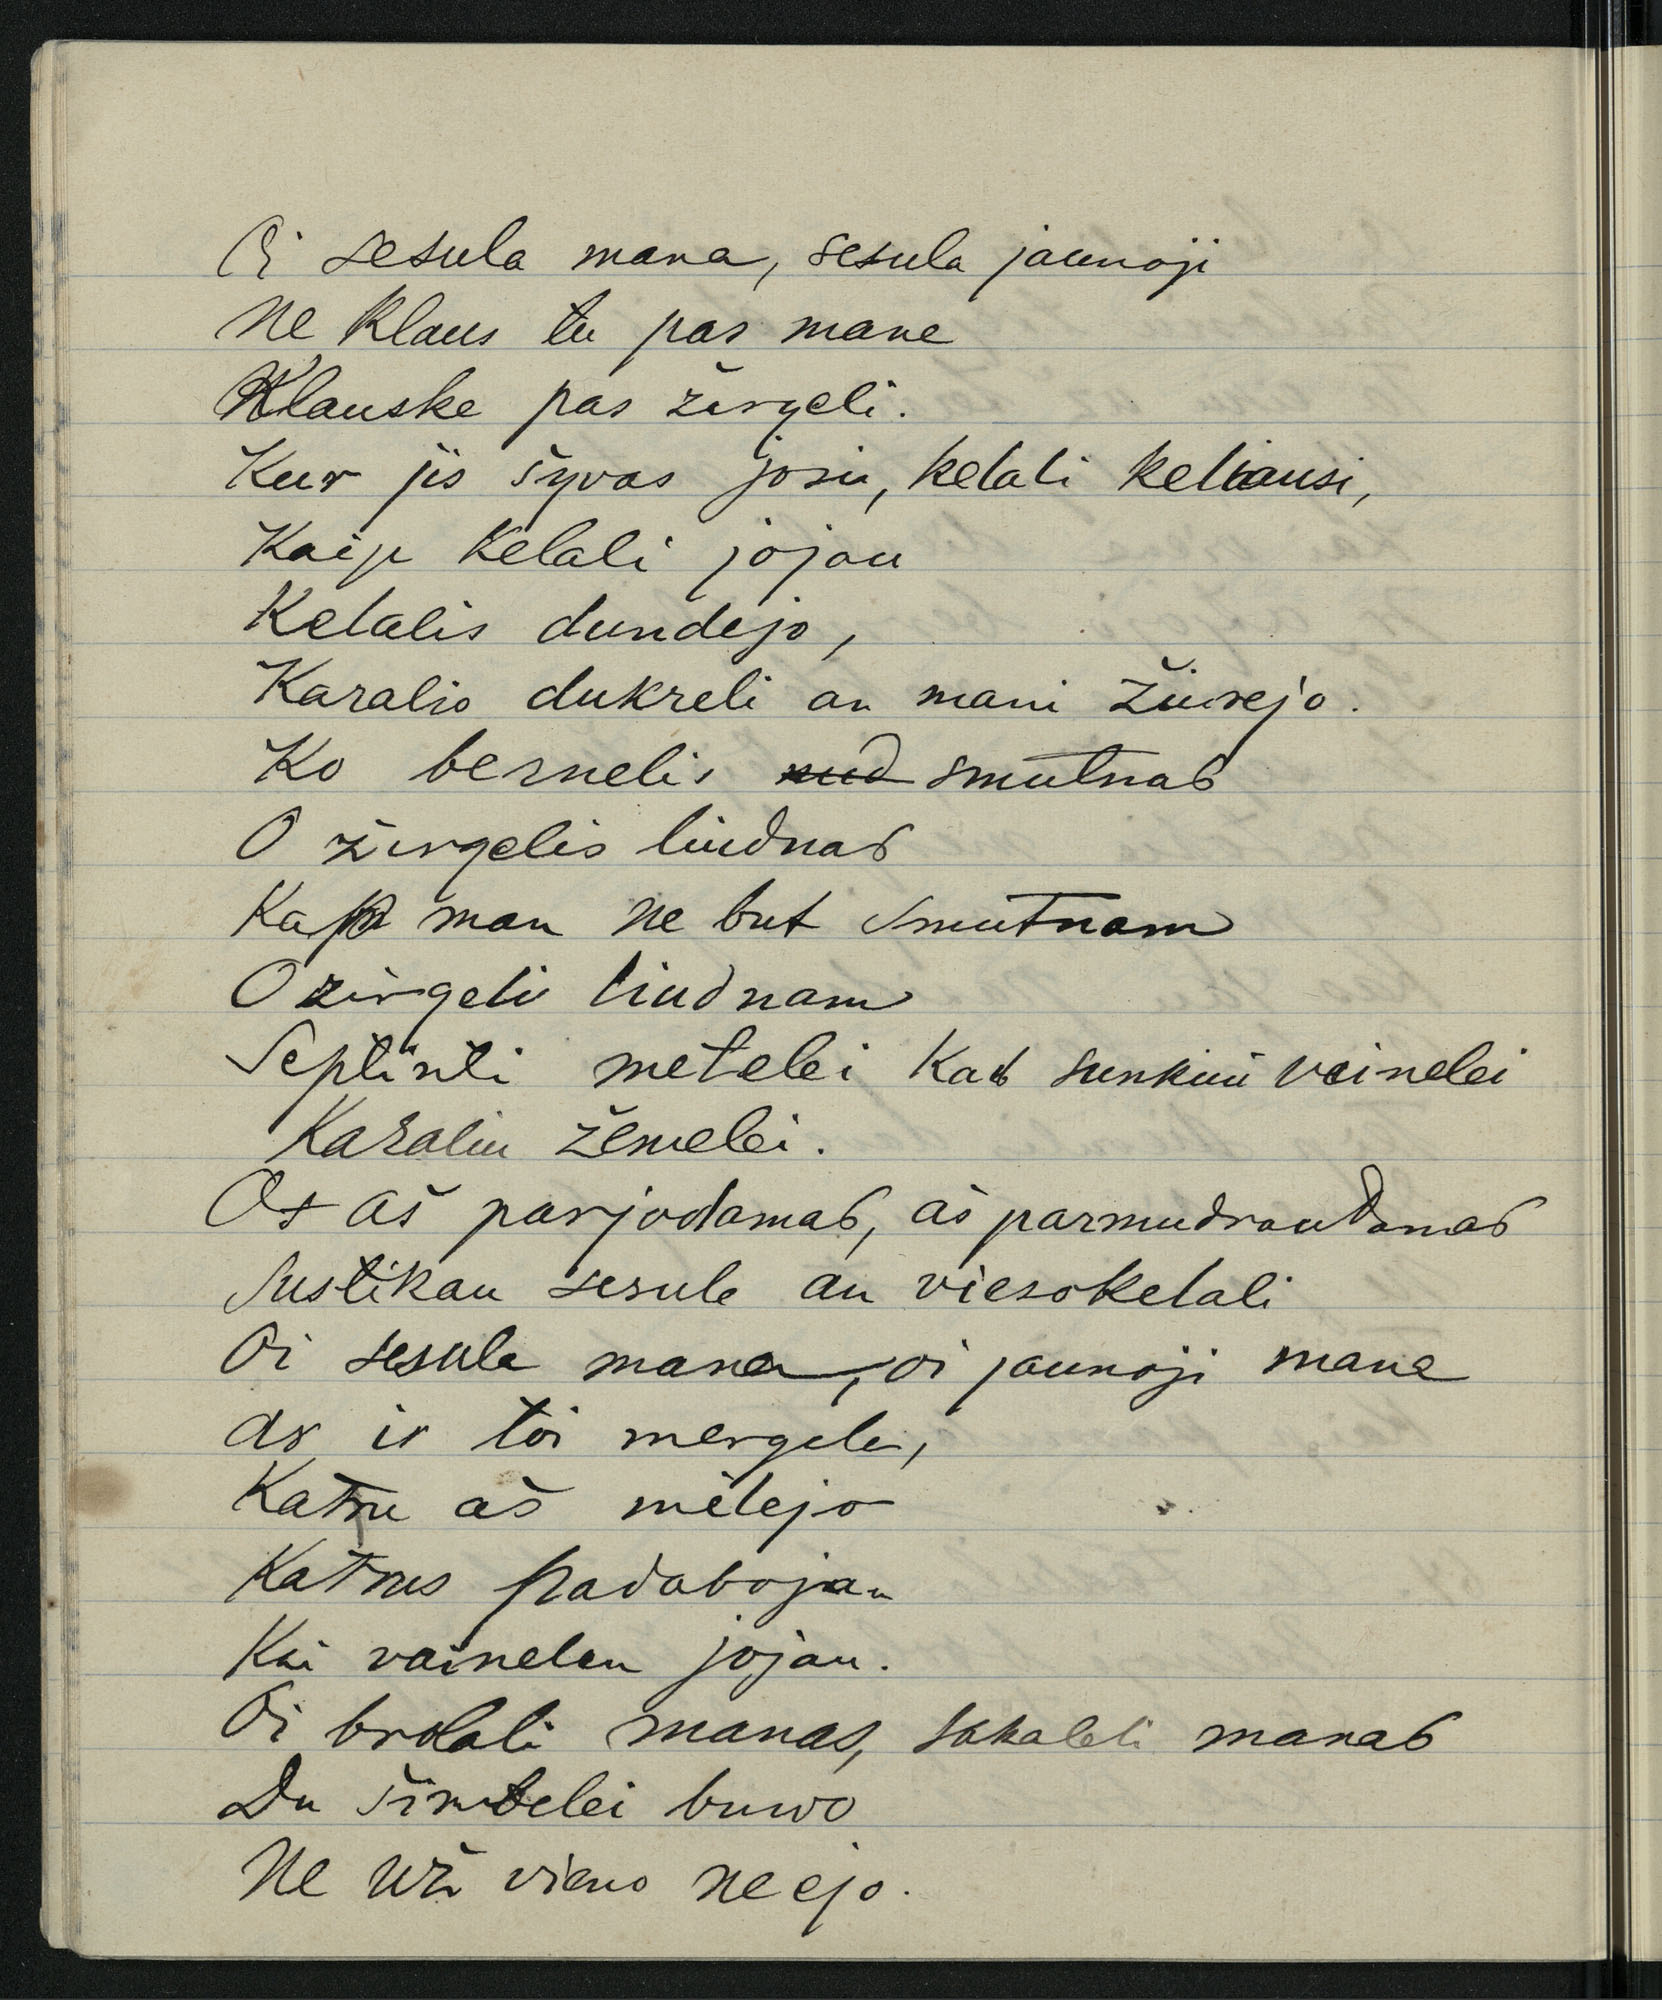 Oi sesula mana, sesula jaunoji
Ne klaus tu pas mane
Klauske pas žirgeli.
Kur jis šyvas josiu, kelali keliausi,
Kaip kelali jojau
Kelalis dundejo,
Karalio dukreli an mani žiurejo.
Ko bernelis smutnas
O žirgelis liudnas
Kap man ne but smutnam
O žirgeli liudnam
Septinti metelei kad sunkiu vainelei
Karaliu žemelei.
Ot aš parjodamas, aš parmudraudamas
Sustikau sesule an viesokelali
Oi sesula mana, oi jaunoji mana
ar ir toi mergele,
Katru aš mėlejo
Katrus padabojau
Kai vainelen jojau.
Oi brolali manas, sakaleli manas
Du šimtelei buwo
Ne už vieno neejo.